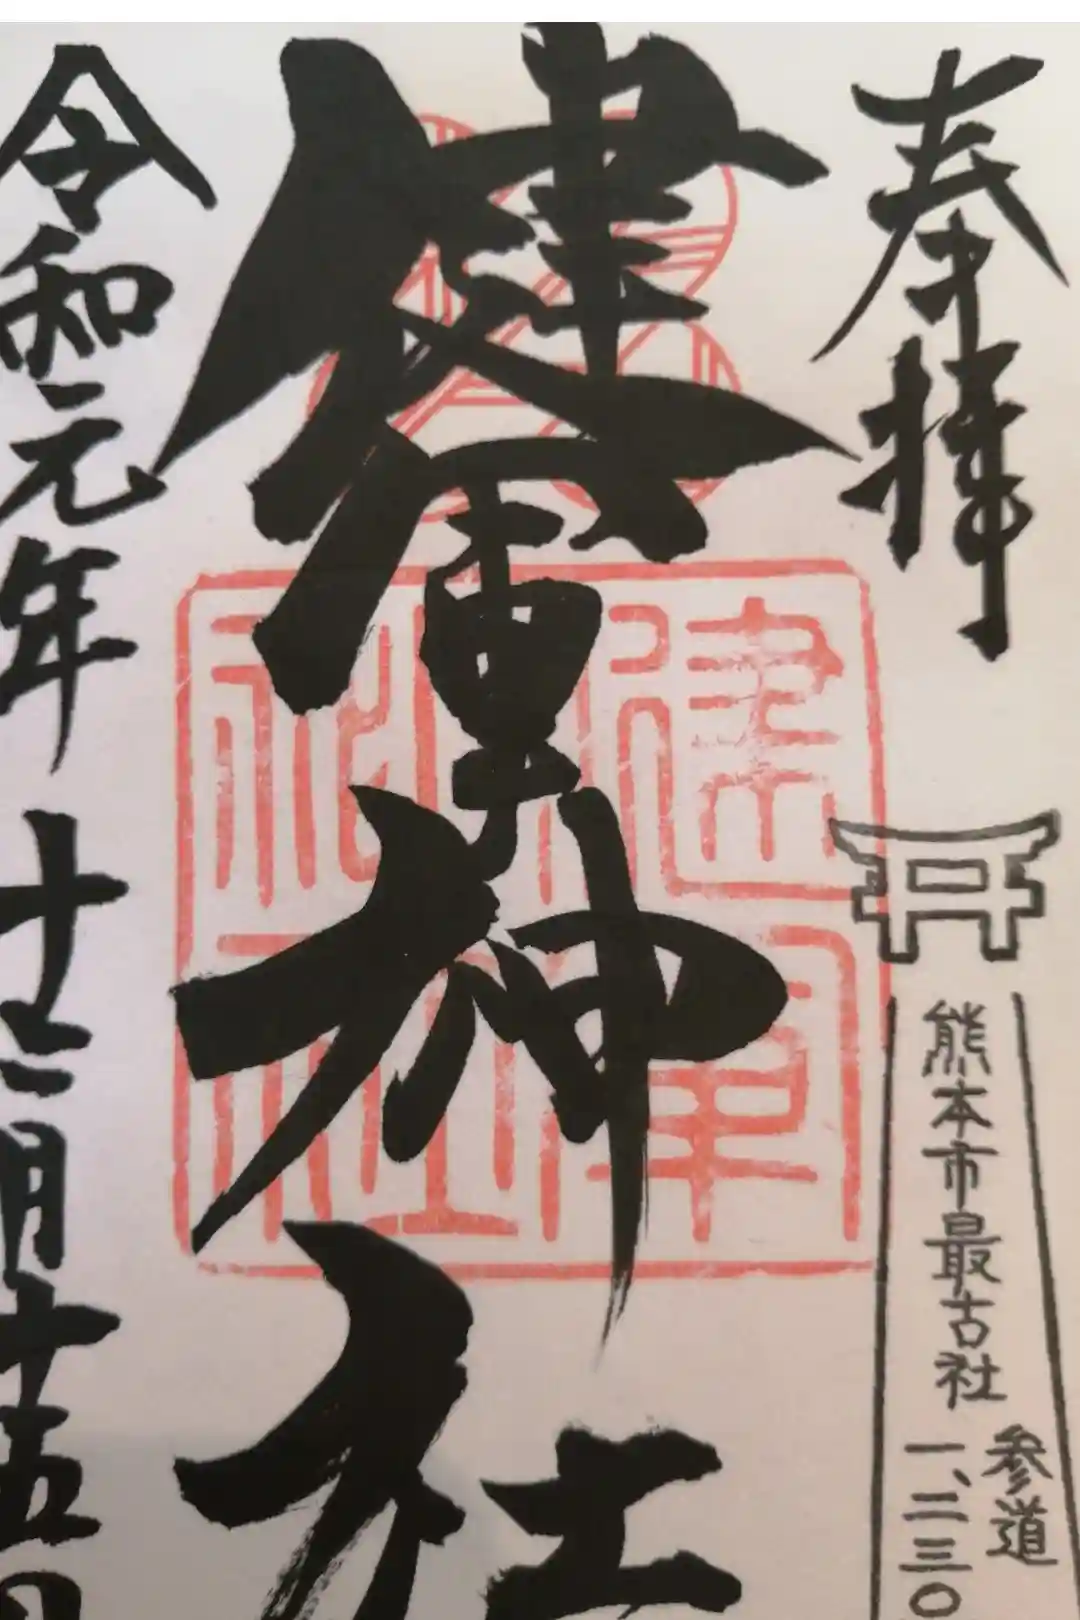 奉拝
熊本市最古社
参道
一、二三〇
健軍神社
健軍
神社
令和元年十二月十五日